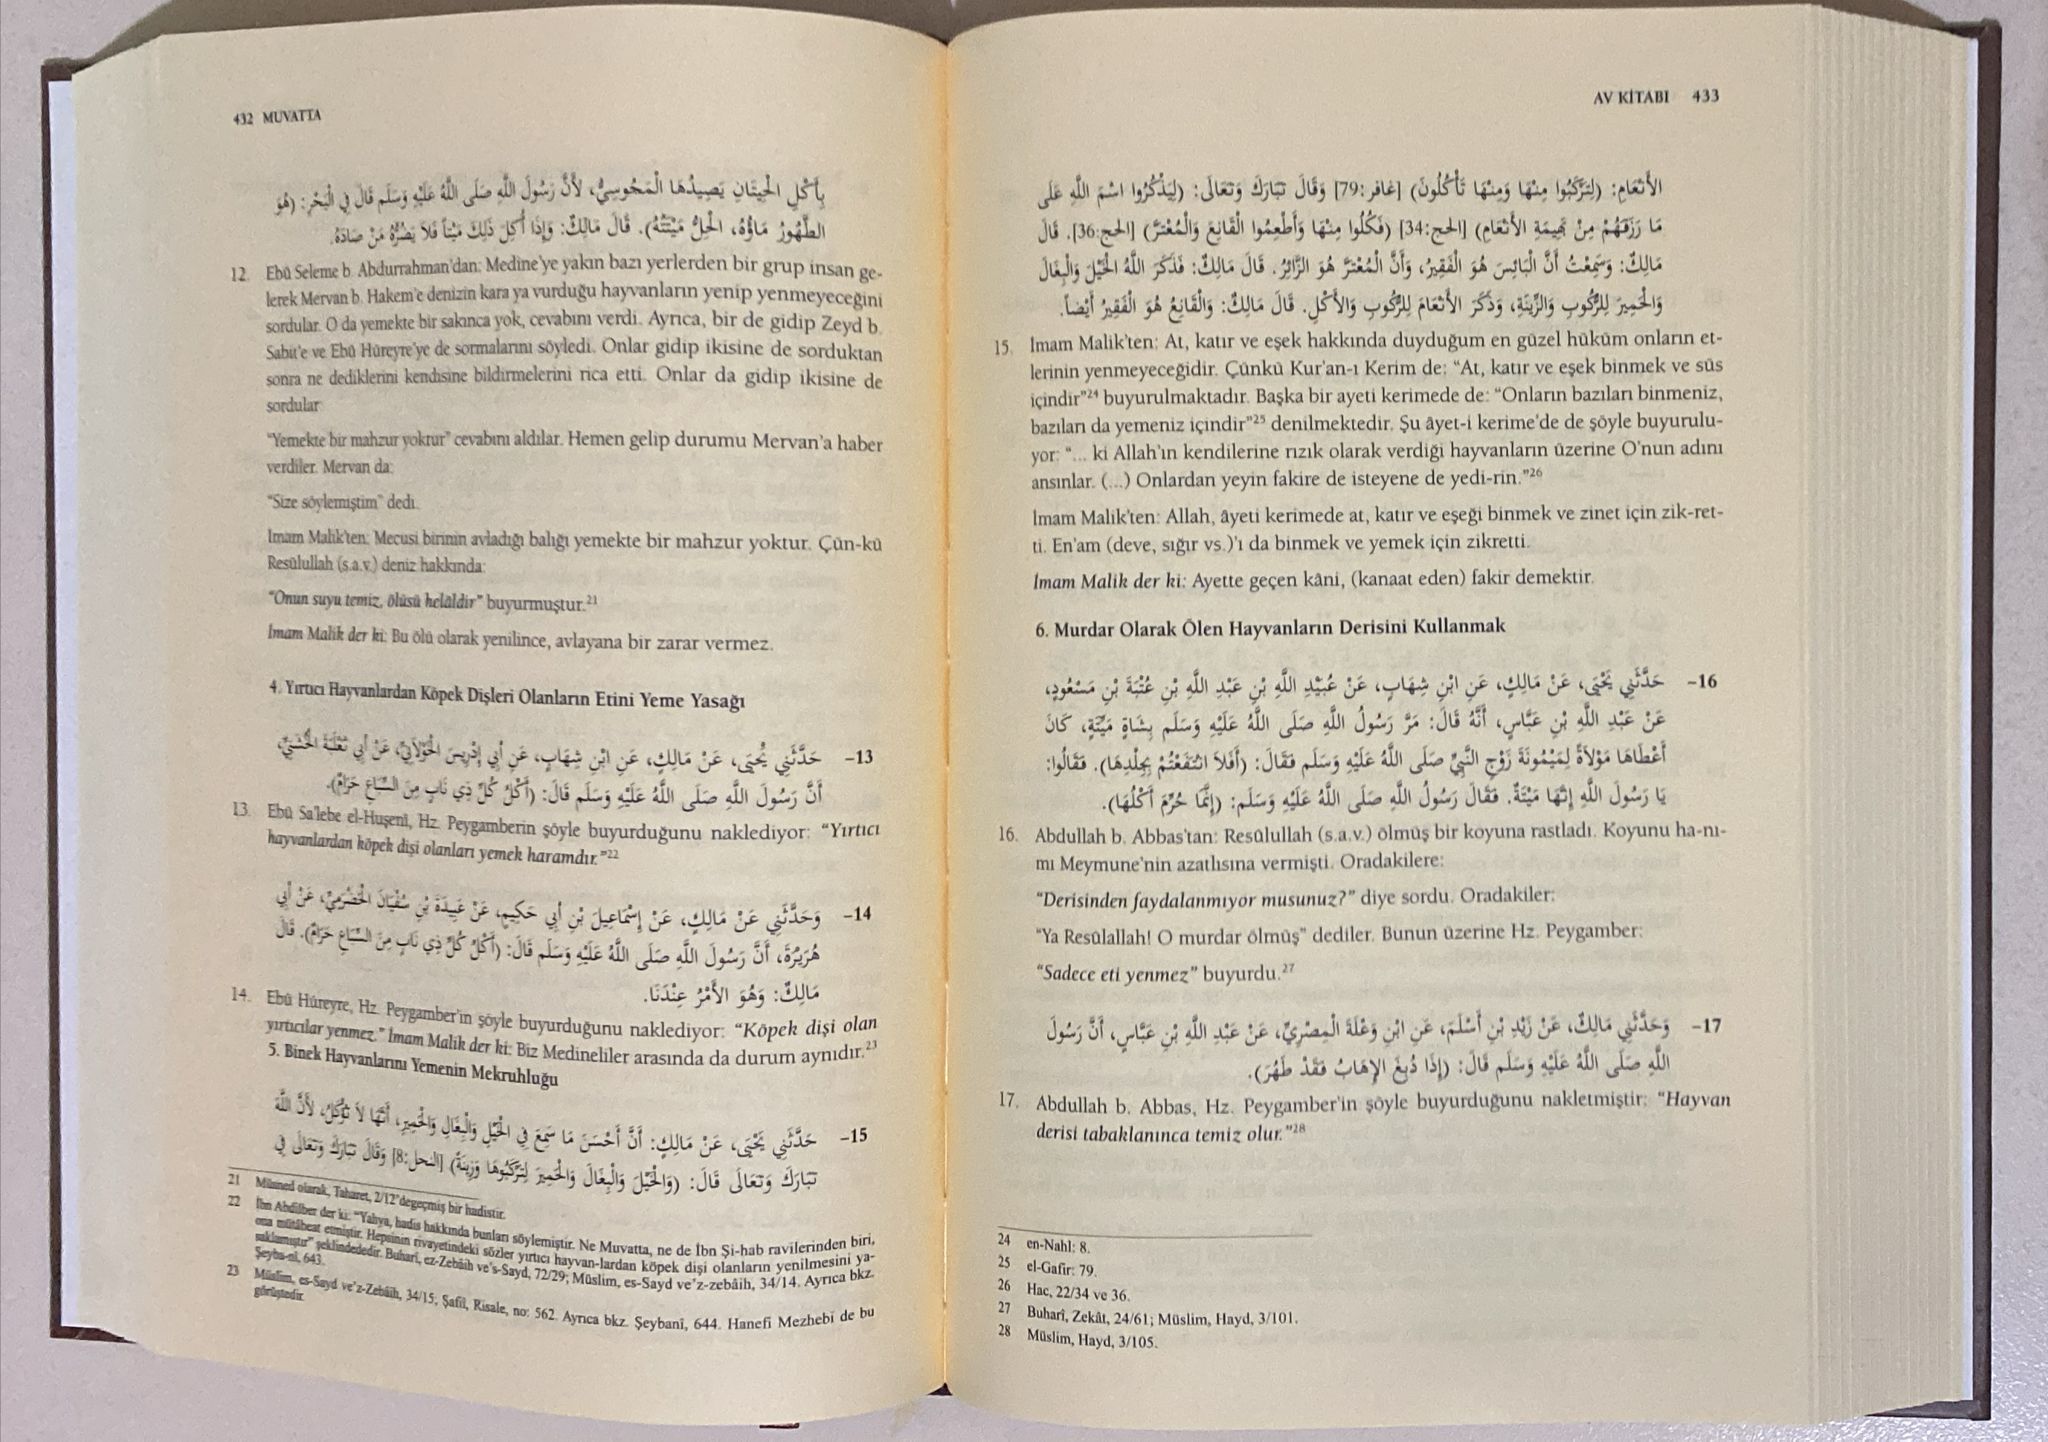 432 MUVATTA
بِأَكْلِ الْحِيتَانِ يَصِيدُهَا الْمَجُوسِيُّ، لأَنَّ رَسُولَ اللَّهِ صَلَى اللَّهُ عَلَيْهِ وَسَلَم قَالَ فِي الْبَحْرِ: (هُوَ
الطَّهُورُ مَاؤُهُ، الْحِلُّ مَيْتَتُهُ). قَالَ مَالِكٌ: وَإِذَا أُكِلَ ذَلِكَ مَيْتاً فَلاَ يَضُرُّهُ مَنْ صَادَهُ.
12. Ebû Seleme b. Abdurrahman'dan: Medine'ye yakın bazı yerlerden bir grup insan ge-
lerek Mervan b. Hakem'e denizin kara ya vurduğu hayvanların yenip yenmeyeceğini
sordular. O da yemekte bir sakınca yok, cevabını verdi. Ayrıca, bir de gidip Zeyd b.
Sabit'e ve Ebû Hüreyre'ye de sormalarını söyledi. Onlar gidip ikisine de sorduktan
sonra ne dediklerini kendisine bildirmelerini rica etti. Onlar da gidip ikisine de
sordular
"Yemekte bir mahzur yoktur" cevabını aldılar. Hemen gelip durumu Mervan'a haber
verdiler. Mervan da:
"Size söylemiştim" dedi.
İmam Malik'ten: Mecusi birinin avladığı balığı yemekte bir mahzur yoktur. Çün-kü
Resûlullah (s.a.v.) deniz hakkında:
"Onun suyu temiz, ölüsü helâldir" buyurmuştur.21
İmam Malik der ki: Bu ölü olarak yenilince, avlayana bir zarar vermez.
4. Yırtıcı Hayvanlardan Köpek Dişleri Olanların Etini Yeme Yasağı
13- حَدَّثَنِي يَحْيَى، عَنْ مَالِكٍ، عَنِ ابْنِ شِهَابٍ، عَنِ أَبِي إِدْرِيسَ الْخَوْلاَنِيِّ، عَنْ أَبِي ثَعْلَبَةَ الْخُشَنِيِّ،
أَنَّ رَسُولَ اللَّهِ صَلَى اللَّهُ عَلَيْهِ وَسَلَم قَالَ: (أَكْلُ كُلِّ ذِي نَابٍ مِنَ السِّبَاعِ حَرَامٌ).
13. Ebû Sa'lebe el-Huşenî, Hz. Peygamberin şöyle buyurduğunu naklediyor: "Yırtıcı
hayvanlardan köpek dişi olanları yemek haramdır."22
14- وَحَدَّثَنِي عَنْ مَالِكٍ، عَنْ إِسْمَاعِيلَ بْنِ أَبِي حَكِيمٍ، عَنْ عَبِيدَةَ بْنِ سُفْيَانَ الْحَضْرَمِيِّ، عَنْ أَبِي
هُرَيْرَةَ، أَنَّ رَسُولَ اللَّهِ صَلَى اللَّهُ عَلَيْهِ وَسَلَم قَالَ: (أَكْلُ كُلِّ ذِي نَابٍ مِنَ السِّبَاعِ حَرَامٌ). قَالَ
مَالِكٌ: وَهُوَ الأَمْرُ عِنْدَنَا.
14. Ebû Hüreyre, Hz. Peygamber'in şöyle buyurduğunu naklediyor: "Köpek dişi olan
yırtıcılar yenmez." İmam Malik der ki: Biz Medineliler arasında da durum aynıdır.23
5. Binek Hayvanlarını Yemenin Mekruhluğu
15- حَدَّثَنِي يَحْيَى، عَنْ مَالِكٍ: أَنَّ أَحْسَنَ مَا سَمِعَ فِي الْخَيْلِ وَالْبِغَالِ وَالْحَمِيرِ، أَنَّهَا لاَ تُؤْكَلُ، لأَنَّ اللَّهَ
تَبَارَكَ وَتَعَالَى قَالَ: (وَالْخَيْلَ وَالْبِغَالَ وَالْحَمِيرَ لِتَرْكَبُوهَا وَزِينَةً) [النحل:8] وَقَالَ تَبَارَكَ وَتَعَالَى فِي
21 Müsned olarak, Taharet, 2/12'degeçmiş bir hadistir.
22 İbn Abdilber der ki: "Yahya, hadis hakkında bunları söylemiştir. Ne Muvatta, ne de İbn Şi-hab ravilerinden biri,
ona mütâbeat etmiştir. Hepsinin rivayetindeki sözler yırtıcı hayvan-lardan köpek dişi olanların yenilmesini ya-
saklamıştır" şeklindededir. Buharî, ez-Zebâih ve's-Sayd, 72/29; Müslim, es-Sayd ve'z-zebâih, 34/14. Ayrıca bkz.
Şeyba-nî, 643.
23 Müslim, es-Sayd ve'z-Zebâih, 34/15; Şafiî, Risale, no: 562. Ayrıca bkz. Şeybanî, 644. Hanefi Mezhebi de bu
görüştedir.
AV KİTABI 433
الأَنْعَامِ: (لِتَرْكَبُوا مِنْهَا وَمِنْهَا تَأْكُلُونَ) [غافر:79] وَقَالَ تَبَارَكَ وَتَعَالَى: (لِيَذْكُرُوا اسْمَ اللَّهِ عَلَى
مَا رَزَقَهُمْ مِنْ بَهِيمَةِ الأَنْعَامِ) [الحج:34] (فَكُلُوا مِنْهَا وَأَطْعِمُوا الْقَانِعَ وَالْمُعْتَرَّ) [الحج:36]. قَالَ
مَالِكٌ: وَسَمِعْتُ أَنَّ الْبَائِسَ هُوَ الْفَقِيرُ، وَأَنَّ الْمُعْتَرَّ هُوَ الزَّائِرُ. قَالَ مَالِكٌ: فَذَكَرَ اللَّهُ الْخَيْلَ وَالْبِغَالَ
وَالْحَمِيرَ لِلرُّكُوبِ وَالزِّينَةِ، وَذَكَرَ الأَنْعَامَ لِلرُّكُوبِ وَالأَكْلِ. قَالَ مَالِكٌ: وَالْقَانِعُ هُوَ الْفَقِيرُ أَيْضاً.
15. İmam Malik'ten: At, katır ve eşek hakkında duyduğum en güzel hüküm onların et-
lerinin yenmeyeceğidir. Çünkü Kur'an-ı Kerim de: "At, katır ve eşek binmek ve süs
içindir"24 buyurulmaktadır. Başka bir ayeti kerimede de: "Onların bazıları binmeniz,
bazıları da yemeniz içindir"25 denilmektedir. Şu âyet-i kerime'de de şöyle buyurulu-
yor: "... ki Allah'ın kendilerine rızık olarak verdiği hayvanların üzerine O'nun adını
ansınlar. (...) Onlardan yeyin fakire de isteyene de yedi-rin."26
İmam Malik'ten: Allah, âyeti kerimede at, katır ve eşeği binmek ve zinet için zik-ret-
ti. En'am (deve, sığır vs.)'ı da binmek ve yemek için zikretti.
İmam Malik der ki: Ayette geçen kâni, (kanaat eden) fakir demektir.
6. Murdar Olarak Ölen Hayvanların Derisini Kullanmak
16- حَدَّثَنِي يَحْيَى، عَنْ مَالِكٍ، عَنِ ابْنِ شِهَابٍ، عَنْ عُبَيْدِ اللَّهِ بْنِ عَبْدِ اللَّهِ بْنِ عُتْبَةَ بْنِ مَسْعُودٍ،
عَنْ عَبْدِ اللَّهِ بْنِ عَبَّاسٍ، أَنَّهُ قَالَ: مَرَّ رَسُولُ اللَّهِ صَلَى اللَّهُ عَلَيْهِ وَسَلَم بِشَاةٍ مَيِّتَةٍ، كَانَ
أَعْطَاهَا مَوْلاَةً لِمَيْمُونَةَ زَوْجِ النَّبِيِّ صَلَى اللَّهُ عَلَيْهِ وَسَلَم فَقَالَ: (أَفَلاَ انْتَفَعْتُمْ بِجِلْدِهَا). فَقَالُوا:
يَا رَسُولَ اللَّهِ إِنَّهَا مَيْتَةٌ. فَقَالَ رَسُولُ اللَّهِ صَلَى اللَّهُ عَلَيْهِ وَسَلَم: (إِنَّمَا حُرِّمَ أَكْلُهَا).
16. Abdullah b. Abbas'tan: Resûlullah (s.a.v.) ölmüş bir koyuna rastladı. Koyunu ha-nı-
mı Meymune'nin azatlısına vermişti. Oradakilere:
"Derisinden faydalanmıyor musunuz?" diye sordu. Oradakiler:
"Ya Resûlallah! O murdar ölmüş" dediler. Bunun üzerine Hz. Peygamber:
"Sadece eti yenmez" buyurdu.27
17- وَحَدَّثَنِي مَالِكٌ، عَنْ زَيْدِ بْنِ أَسْلَمَ، عَنِ ابْنِ وَعْلَةَ الْمِصْرِيِّ، عَنْ عَبْدِ اللَّهِ بْنِ عَبَّاسٍ، أَنَّ رَسُولَ
اللَّهِ صَلَى اللَّهُ عَلَيْهِ وَسَلَم قَالَ: (إِذَا دُبِغَ الإِهَابُ فَقَدْ طَهُرَ).
17. Abdullah b. Abbas, Hz. Peygamber'in şöyle buyurduğunu nakletmiştir: "Hayvan
derisi tabaklanınca temiz olur."28
24 en-Nahl: 8.
25 el-Gafir: 79.
26 Hac, 22/34 ve 36.
27 Buharî, Zekât, 24/61; Müslim, Hayd, 3/101.
28 Müslim, Hayd, 3/105.